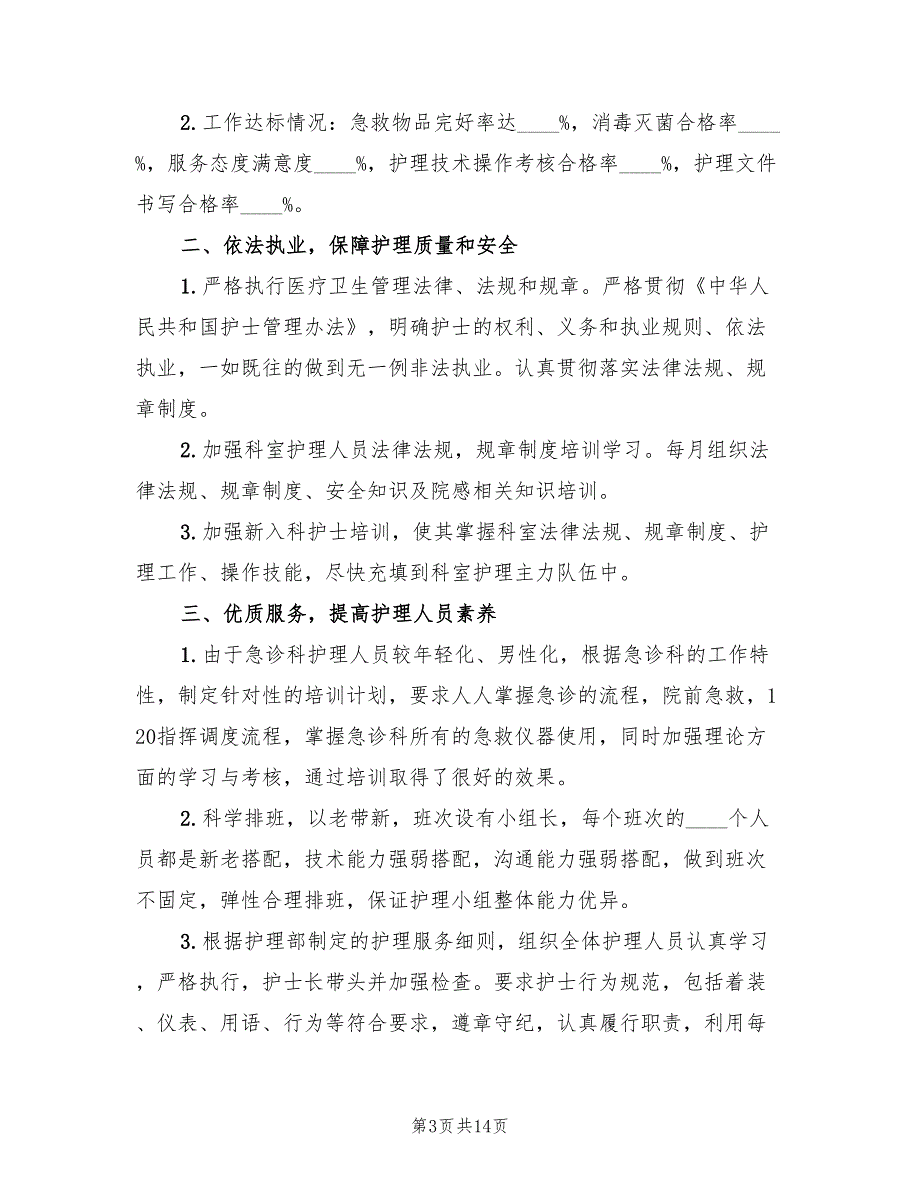 2.工作达标情况：急救物品完好率达____%，消毒灭菌合格率____
%，服务态度满意度____%，护理技术操作考核合格率____%，护理文件
书写合格率____%。
二、依法执业，保障护理质量和安全
1.严格执行医疗卫生管理法律、法规和规章。严格贯彻《中华人
民共和国护士管理办法》，明确护士的权利、义务和执业规则、依法
执业，一如既往的做到无一例非法执业。认真贯彻落实法律法规、规
章制度。
2.加强科室护理人员法律法规，规章制度培训学习。每月组织法
律法规、规章制度、安全知识及院感相关知识培训。
3.加强新入科护士培训，使其掌握科室法律法规、规章制度、护
理工作、操作技能，尽快充填到科室护理主力队伍中。
三、优质服务，提高护理人员素养
1.由于急诊科护理人员较年轻化、男性化，根据急诊科的工作特
性，制定针对性的培训计划，要求人人掌握急诊的流程，院前急救，1
20指挥调度流程，掌握急诊科所有的急救仪器使用，同时加强理论方
面的学习与考核，通过培训取得了很好的效果。
2.科学排班，以老带新，班次设有小组长，每个班次的____个人
员都是新老搭配，技术能力强弱搭配，沟通能力强弱搭配，做到班次
不固定，弹性合理排班，保证护理小组整体能力优异。
3.根据护理部制定的护理服务细则，组织全体护理人员认真学习
，严格执行，护士长带头并加强检查。要求护士行为规范，包括着装
、仪表、用语、行为等符合要求，遵章守纪，认真履行职责，利用每
第3页共14页